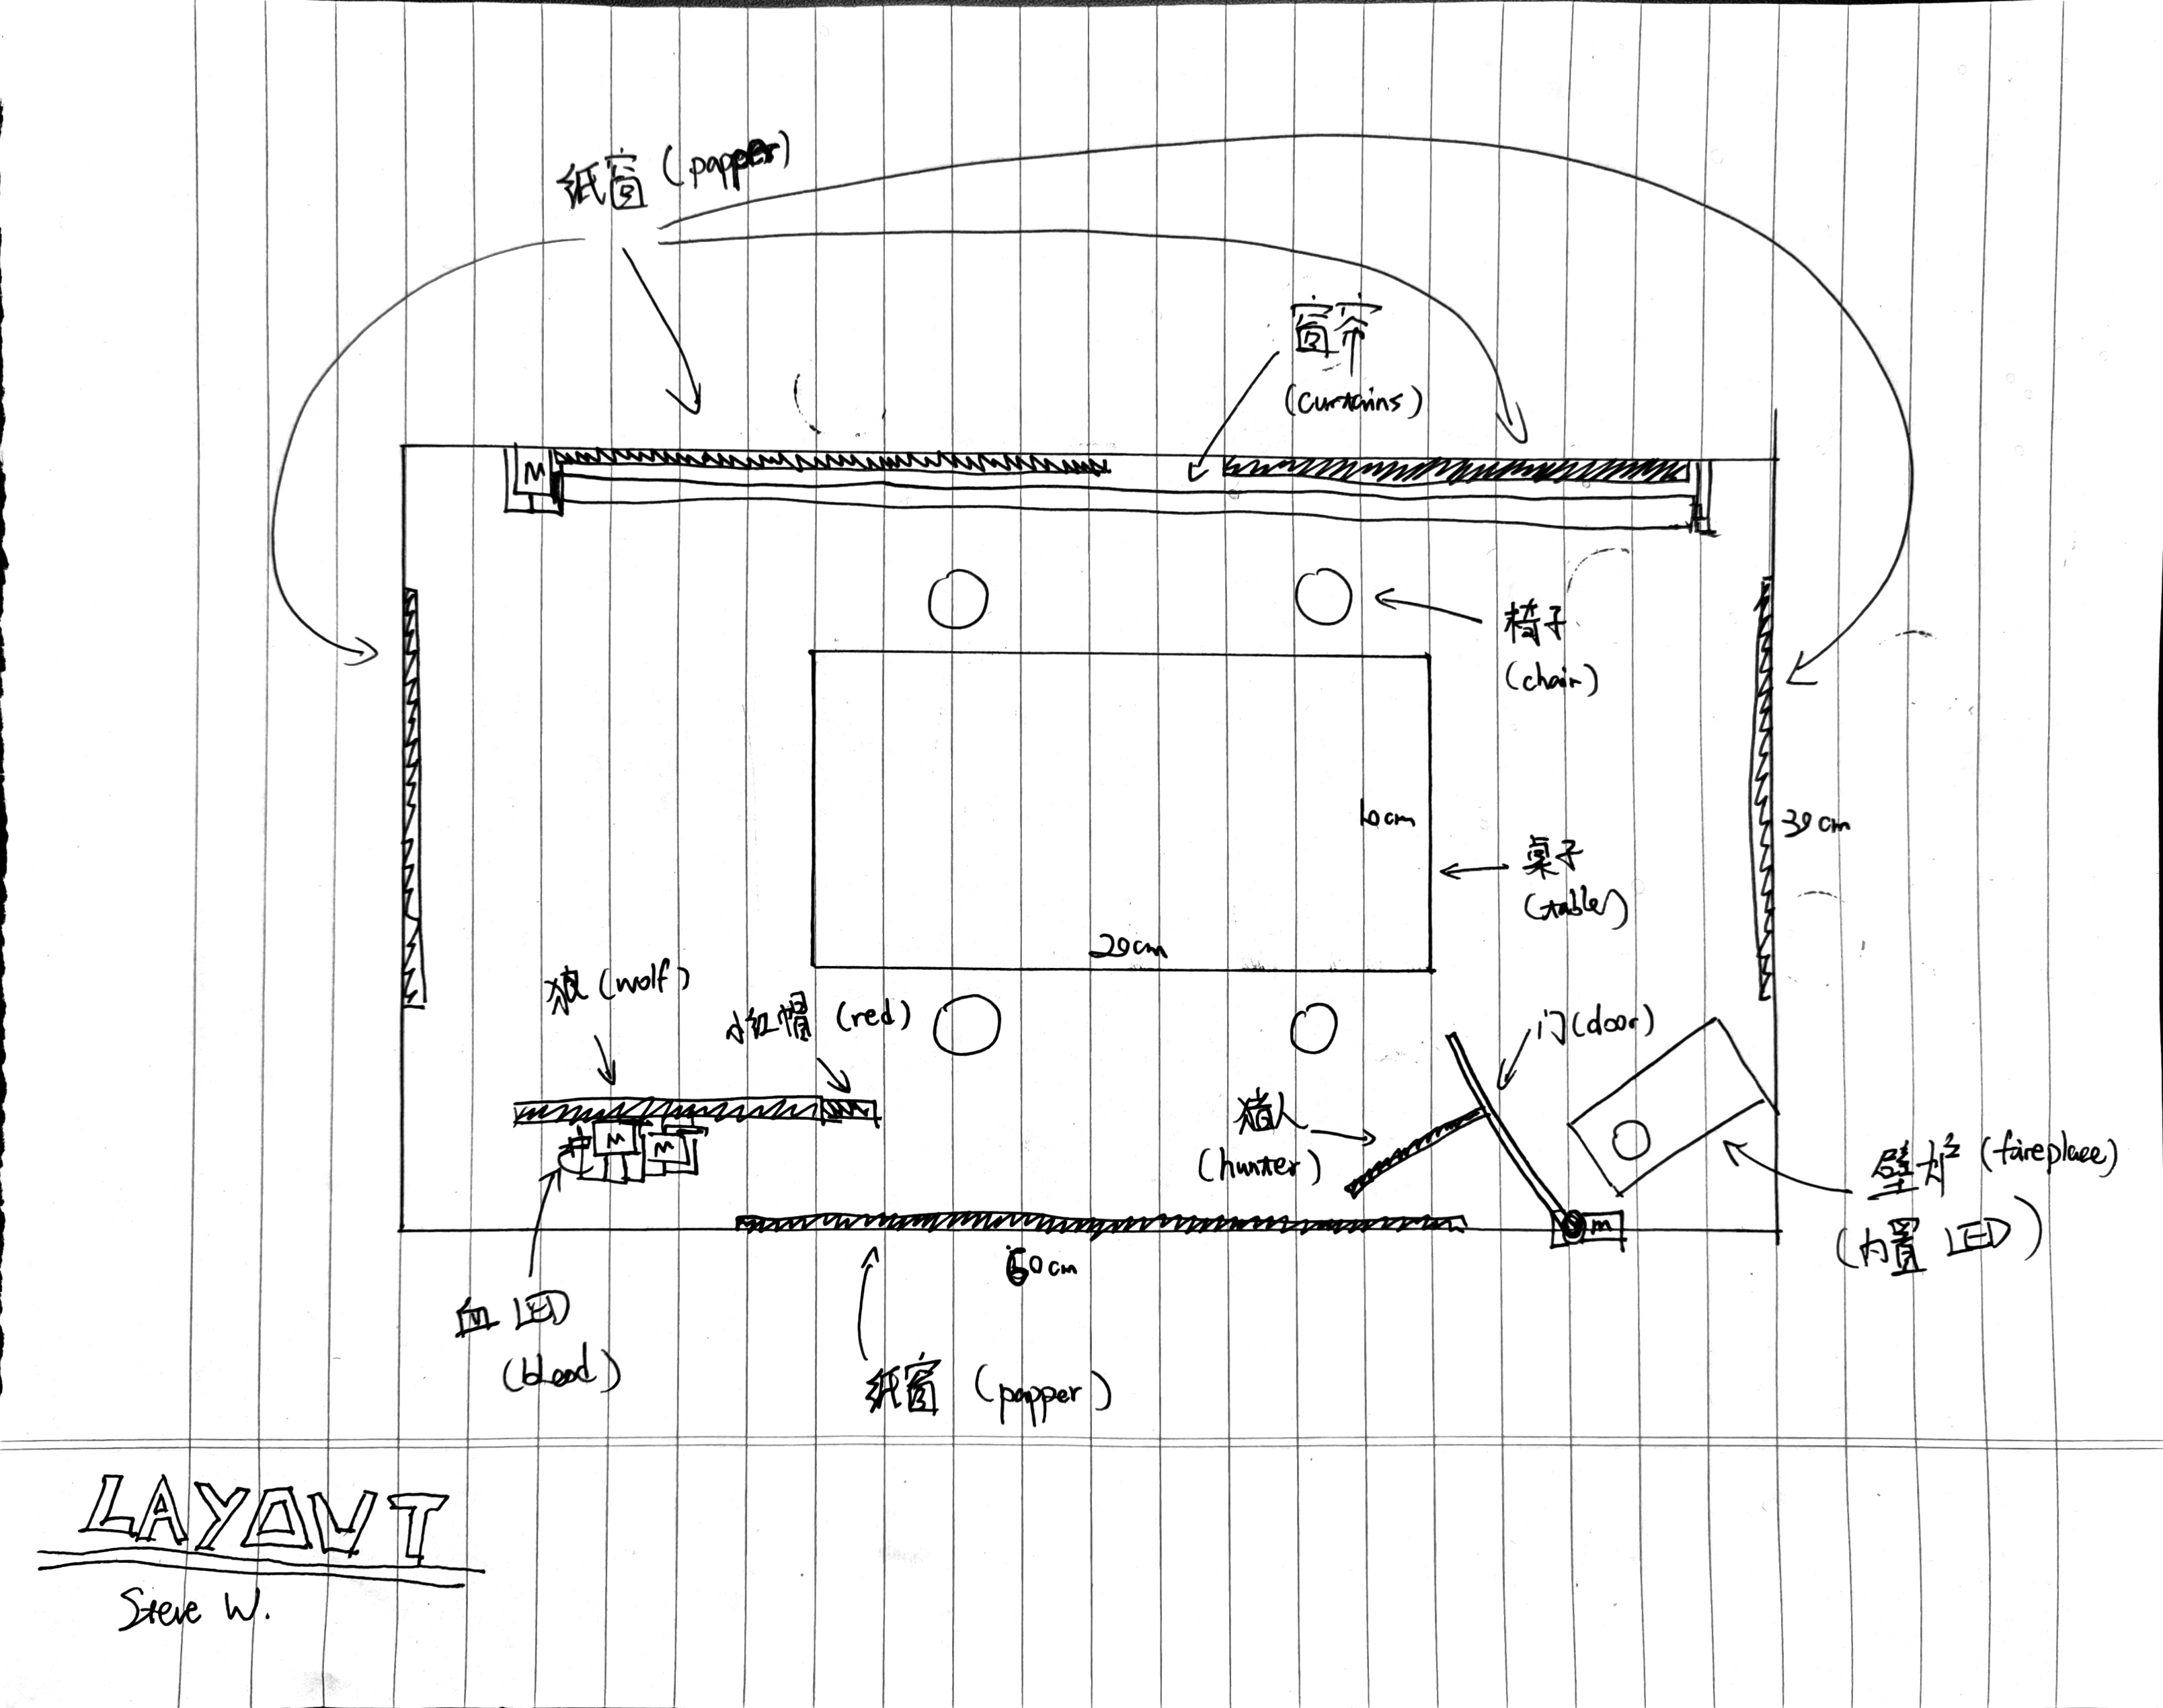 纸窗 (papper)
窗帘
(curtains)
M
椅子
(chair)
10cm
39cm
桌子
(table)
29cm
狼 (wolf)
小红帽 (red)
门 (door)
猎人
(hunter)
M
M
壁灯 (faireplace)
(内置 LED)
m
60cm
血 LED
(blood)
纸窗 (papper)
LAYOUT
Steve W.